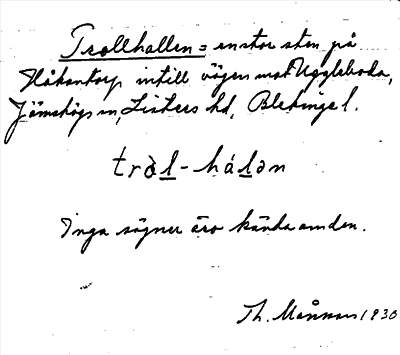 Trollhallen = en stor sten på
Håkantorp intill vägen mot Uggleboda,
Jämshögs sn, Listers hd, Blekinge l.
tròl-hálən
Inga sägner äro kända om den.
Th. Månsson 1930